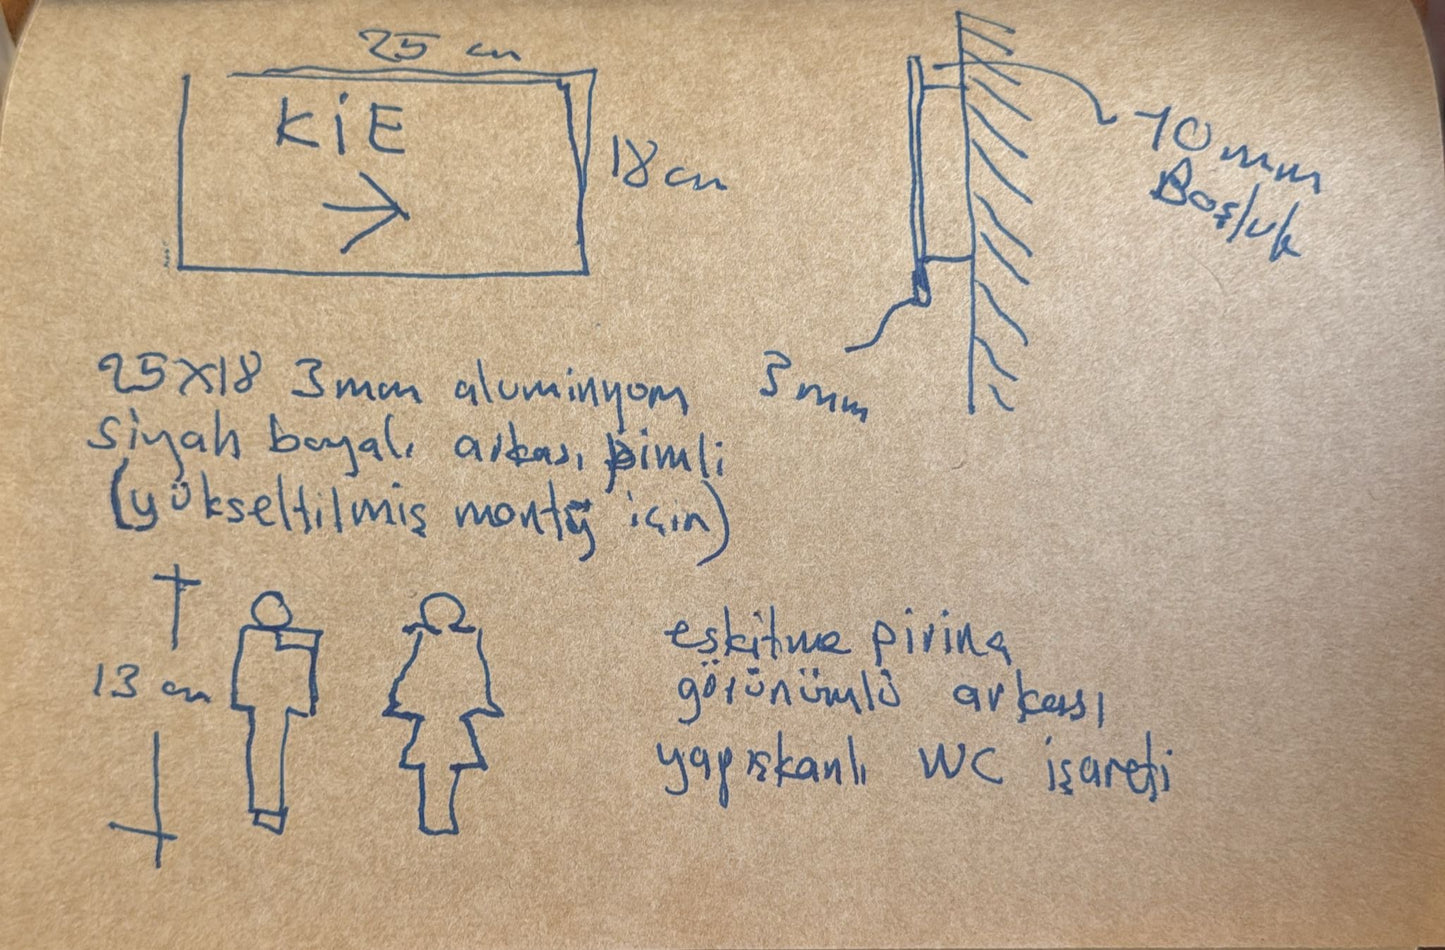 25 cm
KiE
18 cm
10 mm
Boşluk
3 mm
25x18 3mm aluminyom
siyah boyalı arkası pimli
(yükseltilmiş montaj için)
13 cm
eskitme pirinç
görünümlü arkası
yapışkanlı WC işareti